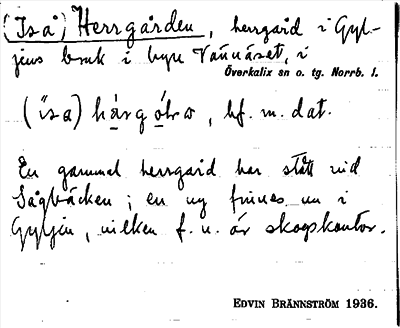 (Iså) Herrgården, herrgård i Gyl-
jens bruk i byn Vännäset, i
Överkalix sn o. tg. Norrb. l.
(ìsa) hárgó̱ḷw, bf. m. dat.
En gammal herrgård har stått vid
Sågbäcken; en ny finnes nu i
Gyljen, vilken f. n. är skogskontor.
EDVIN BRÄNNSTRÖM 1936.